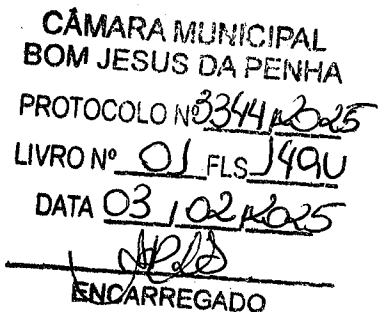 CÂMARA MUNICIPAL
BOM JESUS DA PENHA
PROTOCOLO Nº 3344/2025
LIVRO Nº 01 FLS 149V
DATA 03/02/2025
ENCARREGADO